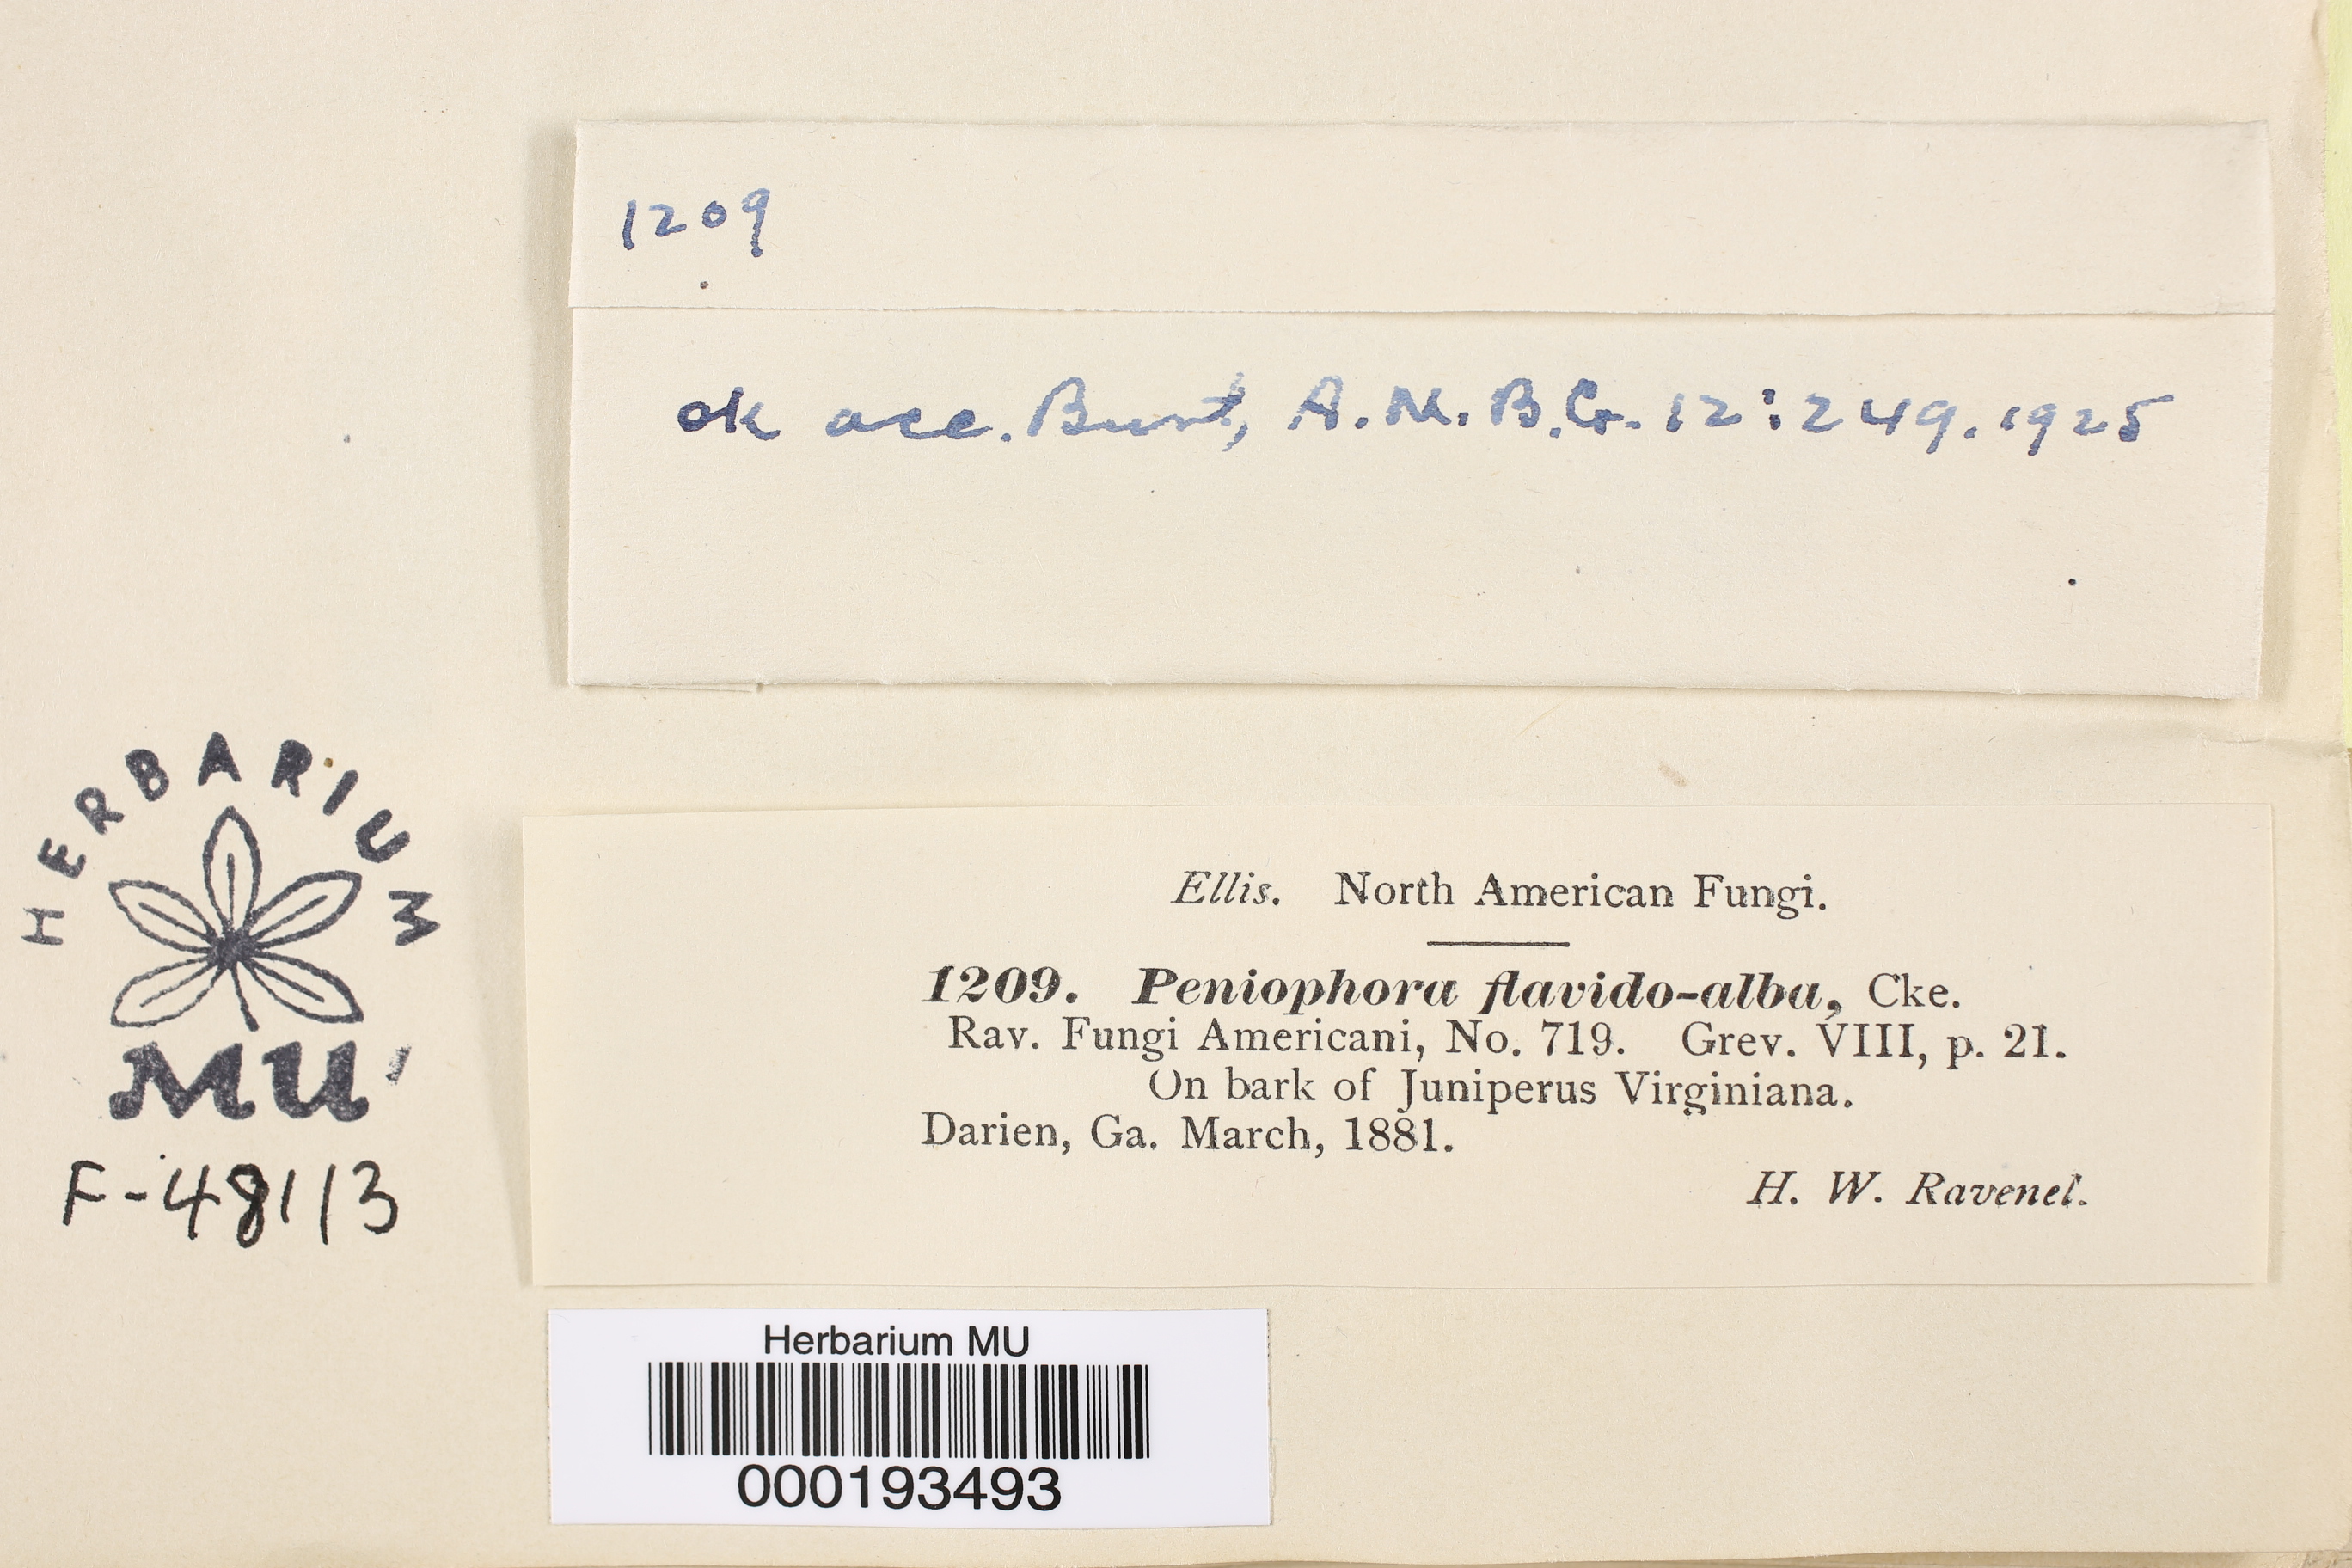 1209
ok acc. Burt, A.M.B.G. 12:249.1925
HERBARIUM
MU
F-48113
Ellis. North American Fungi.
1209. Peniophora flavido-alba, Cke.
Rav. Fungi Americani, No. 719. Grev. VIII, p. 21.
On bark of Juniperus Virginiana.
Darien, Ga. March, 1881.
H. W. Ravenel.
Herbarium MU
000193493